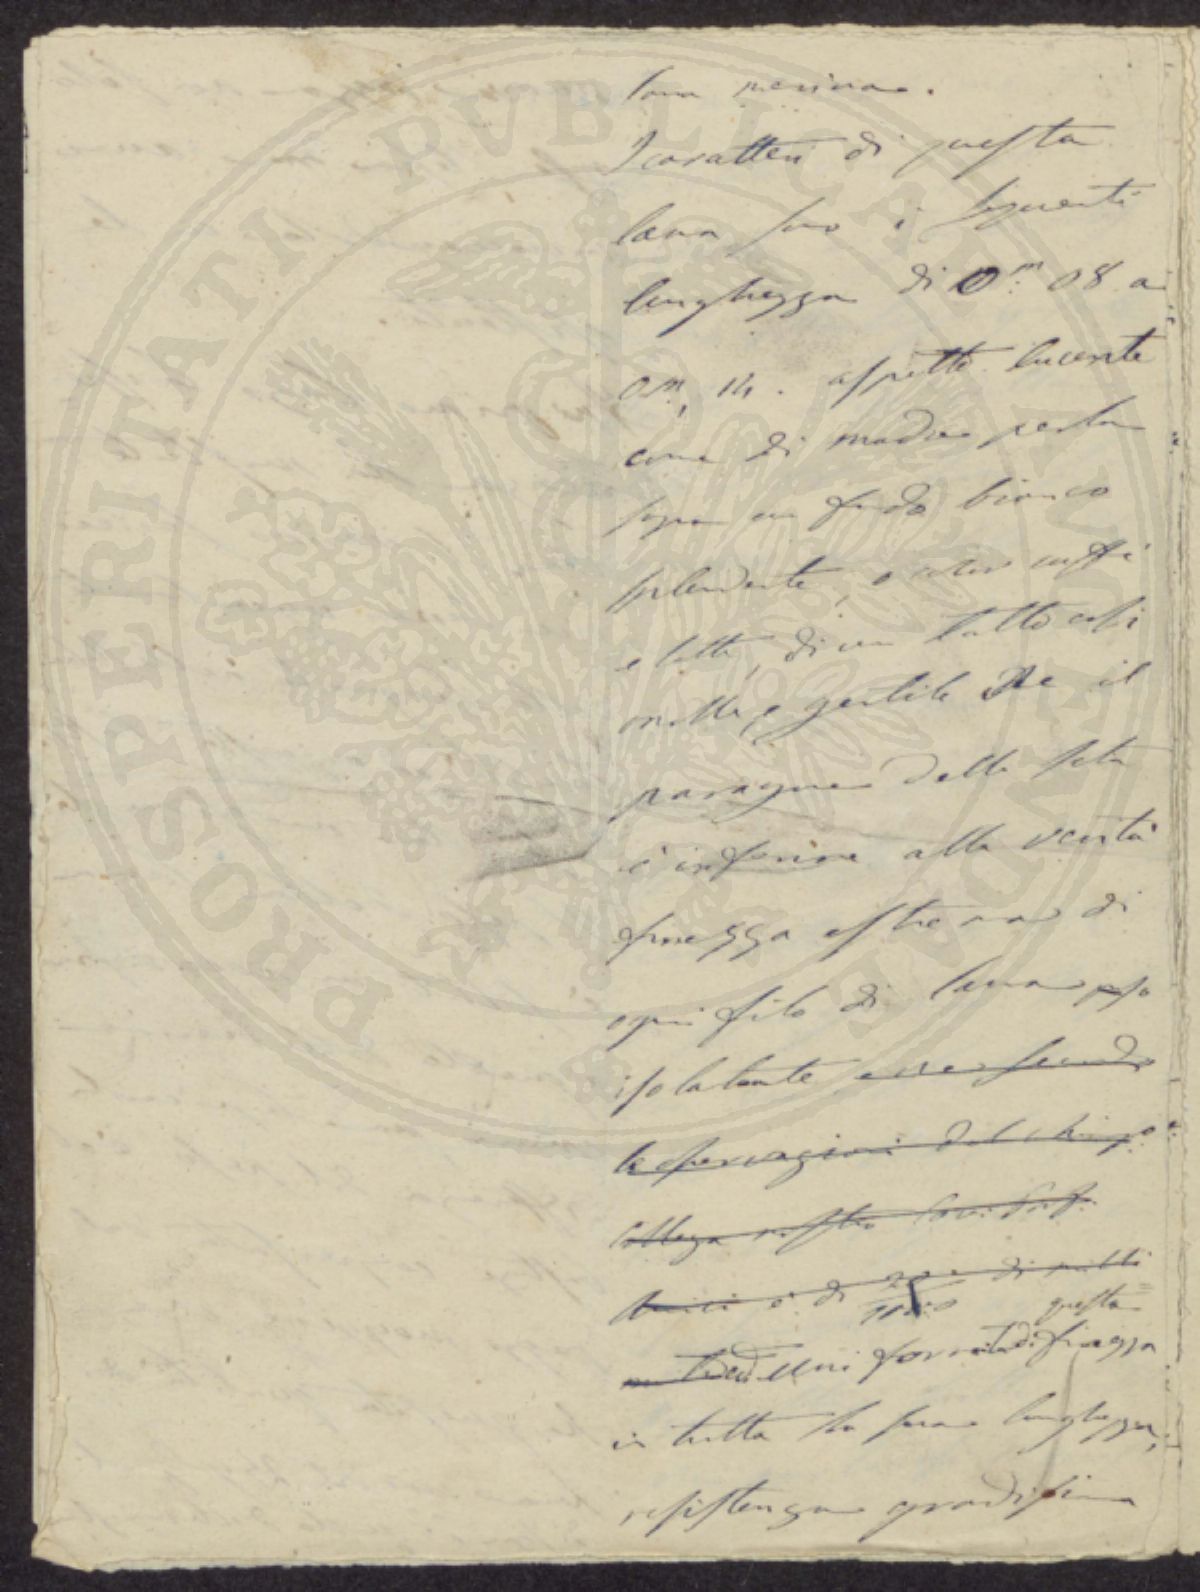 lana merina.
I caratteri di questa
lana sono i seguenti
lunghezza di 0.m 08 a
0m, 14. aspetto lucente
come di madre perla
sopra un fondo bianco
splendente, o color caffè
e latte, di un tatto così
molle, e gentile che il
paragone della seta
è inferiore alla verità
finezza estrema di
ogni filo di lana preso
isolatamente
le osservazioni del chimo
Collega nostro
è di di milli
questa
finezza
in tutta la sua lunghezza,
resistenza grandissima
PROSPERITATI PVBLICAE AVGENDAE